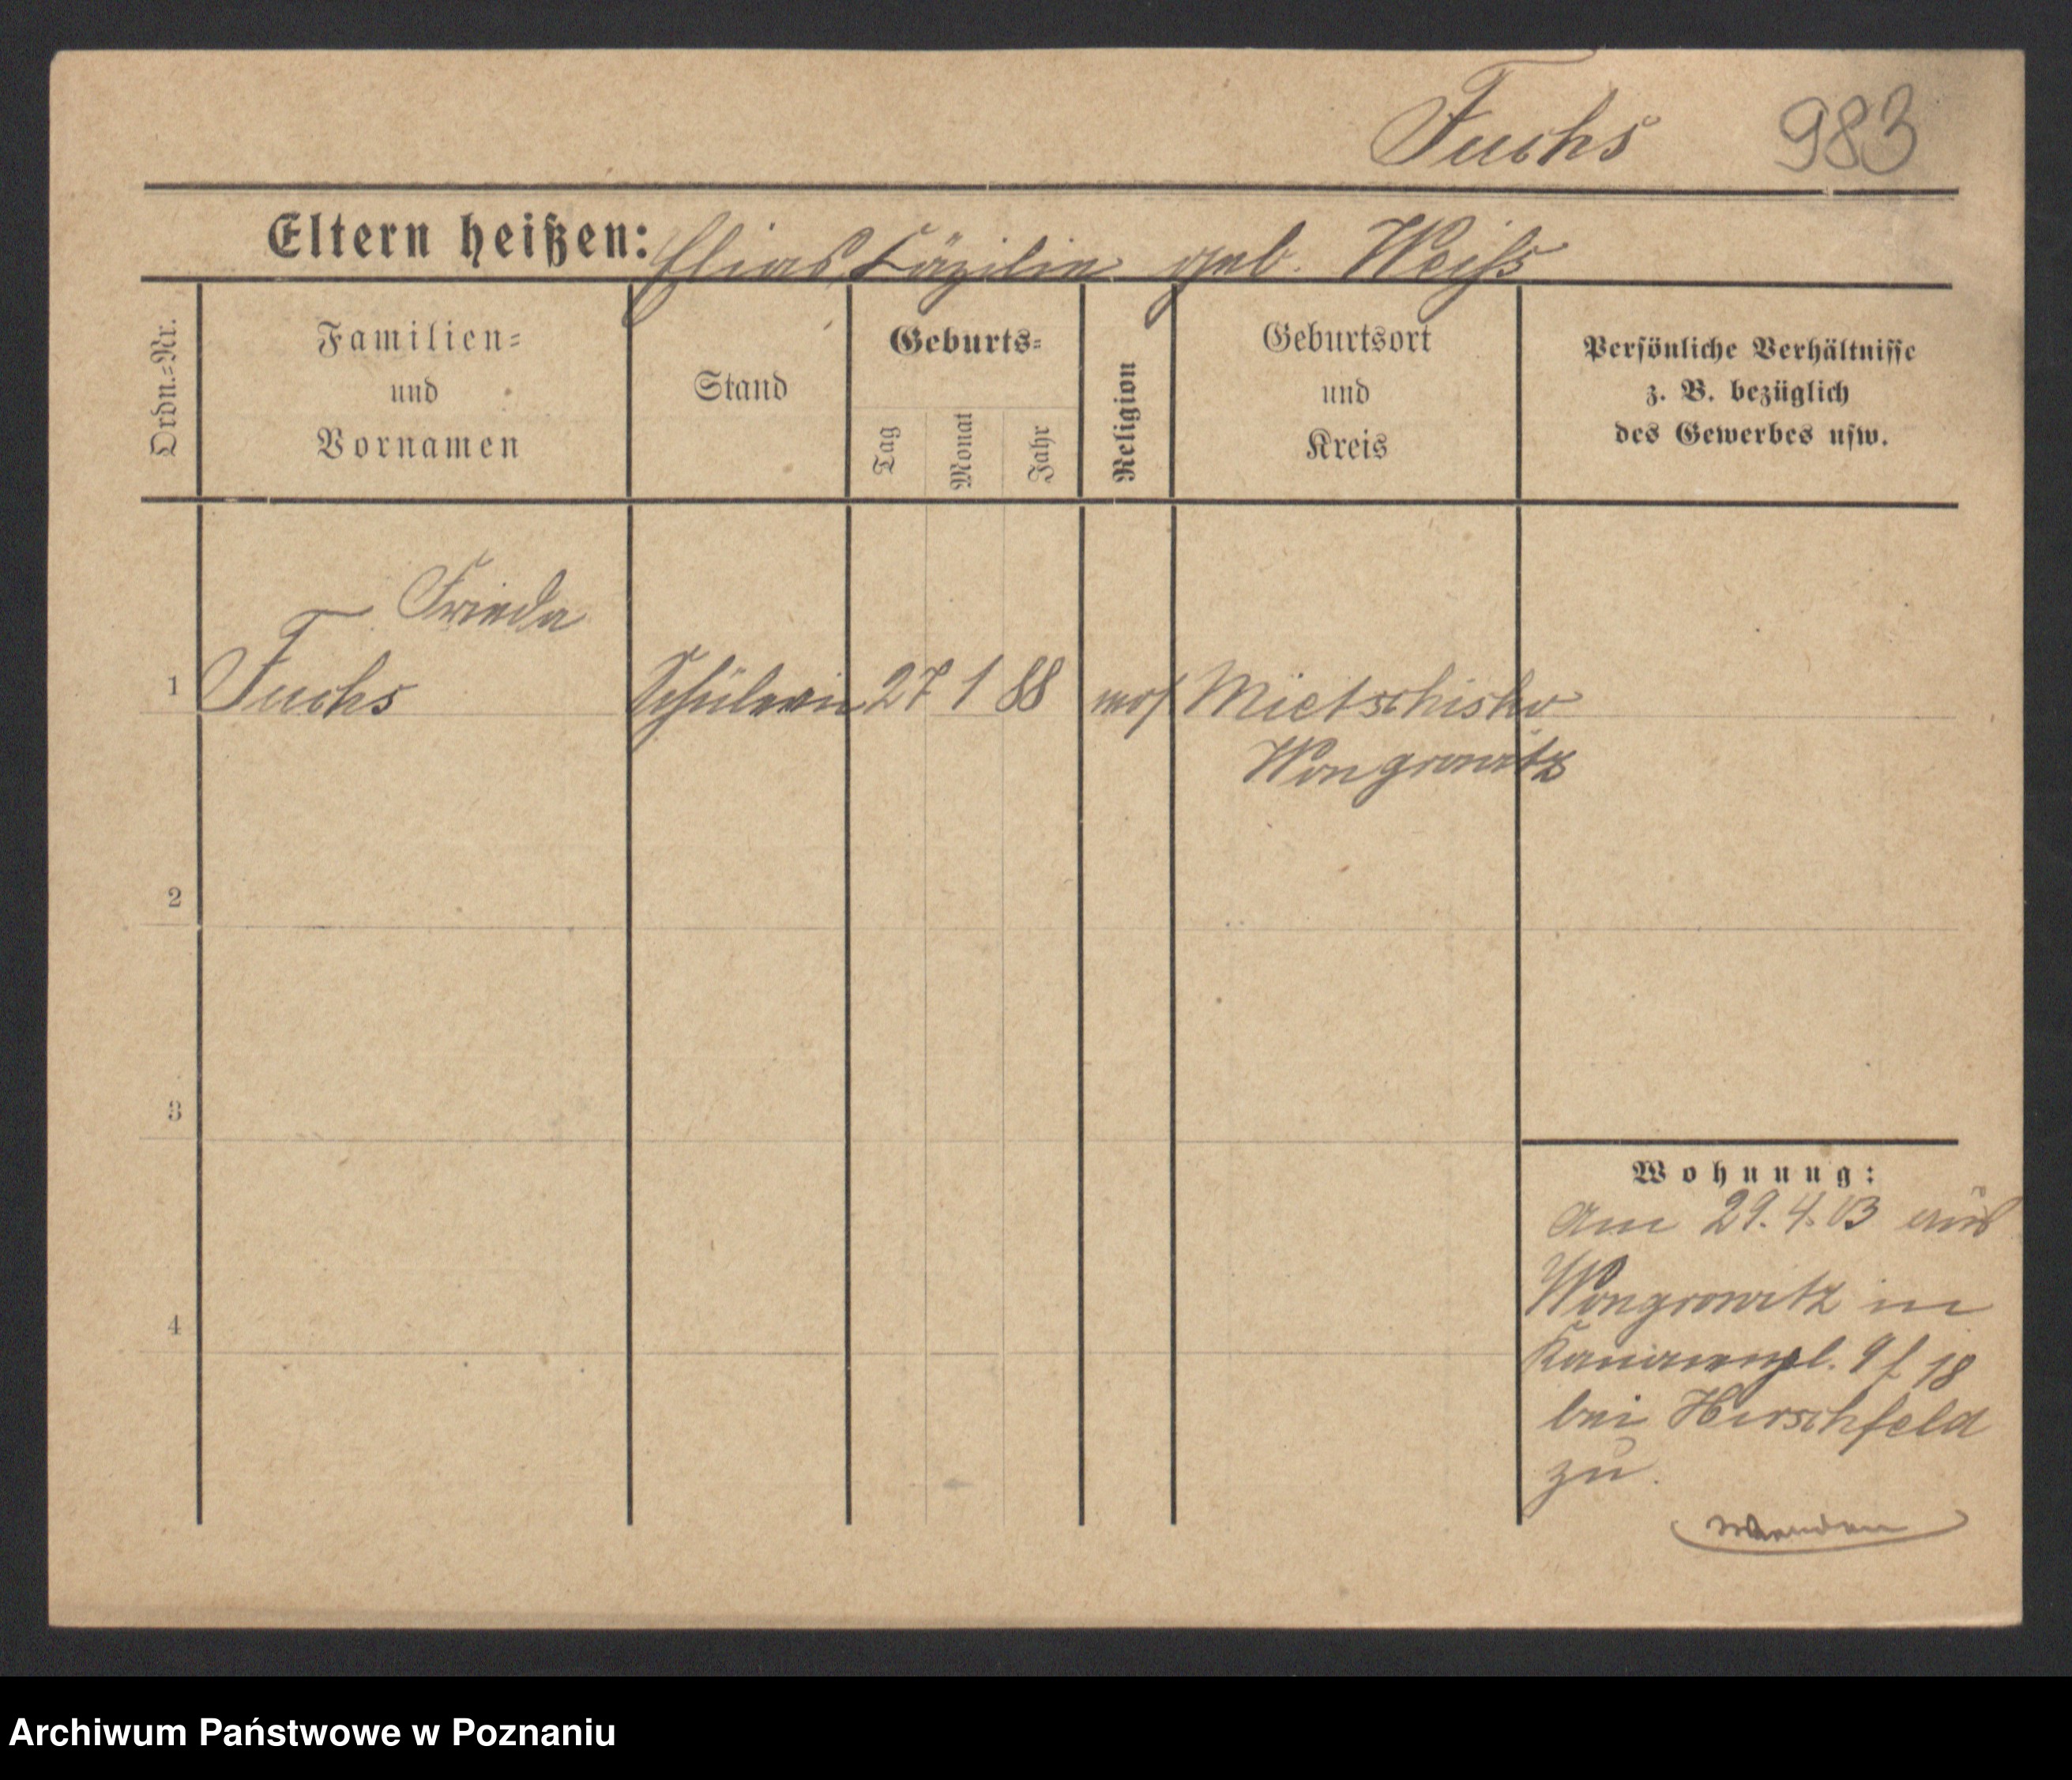 Fuchs 983
Eltern heißen: Elias, Cäzilie geb. Weiß
Ordn.-Nr.
Familien-
und
Vornamen
Stand
Geburts-
Tag
Monat
Jahr
Religion
Geburtsort
und
Kreis
Persönliche Verhältnisse
z. B. bezüglich
des Gewerbes usw.
Frieda
1 Fuchs Schülerin 27 1 88 mos Mietschisko
Wongrowitz
2
3
4
Wohnung:
Am 29.4.03 aus
Wongrowitz in
18
bei Hirschfeld
zu.
Archiwum Państwowe w Poznaniu